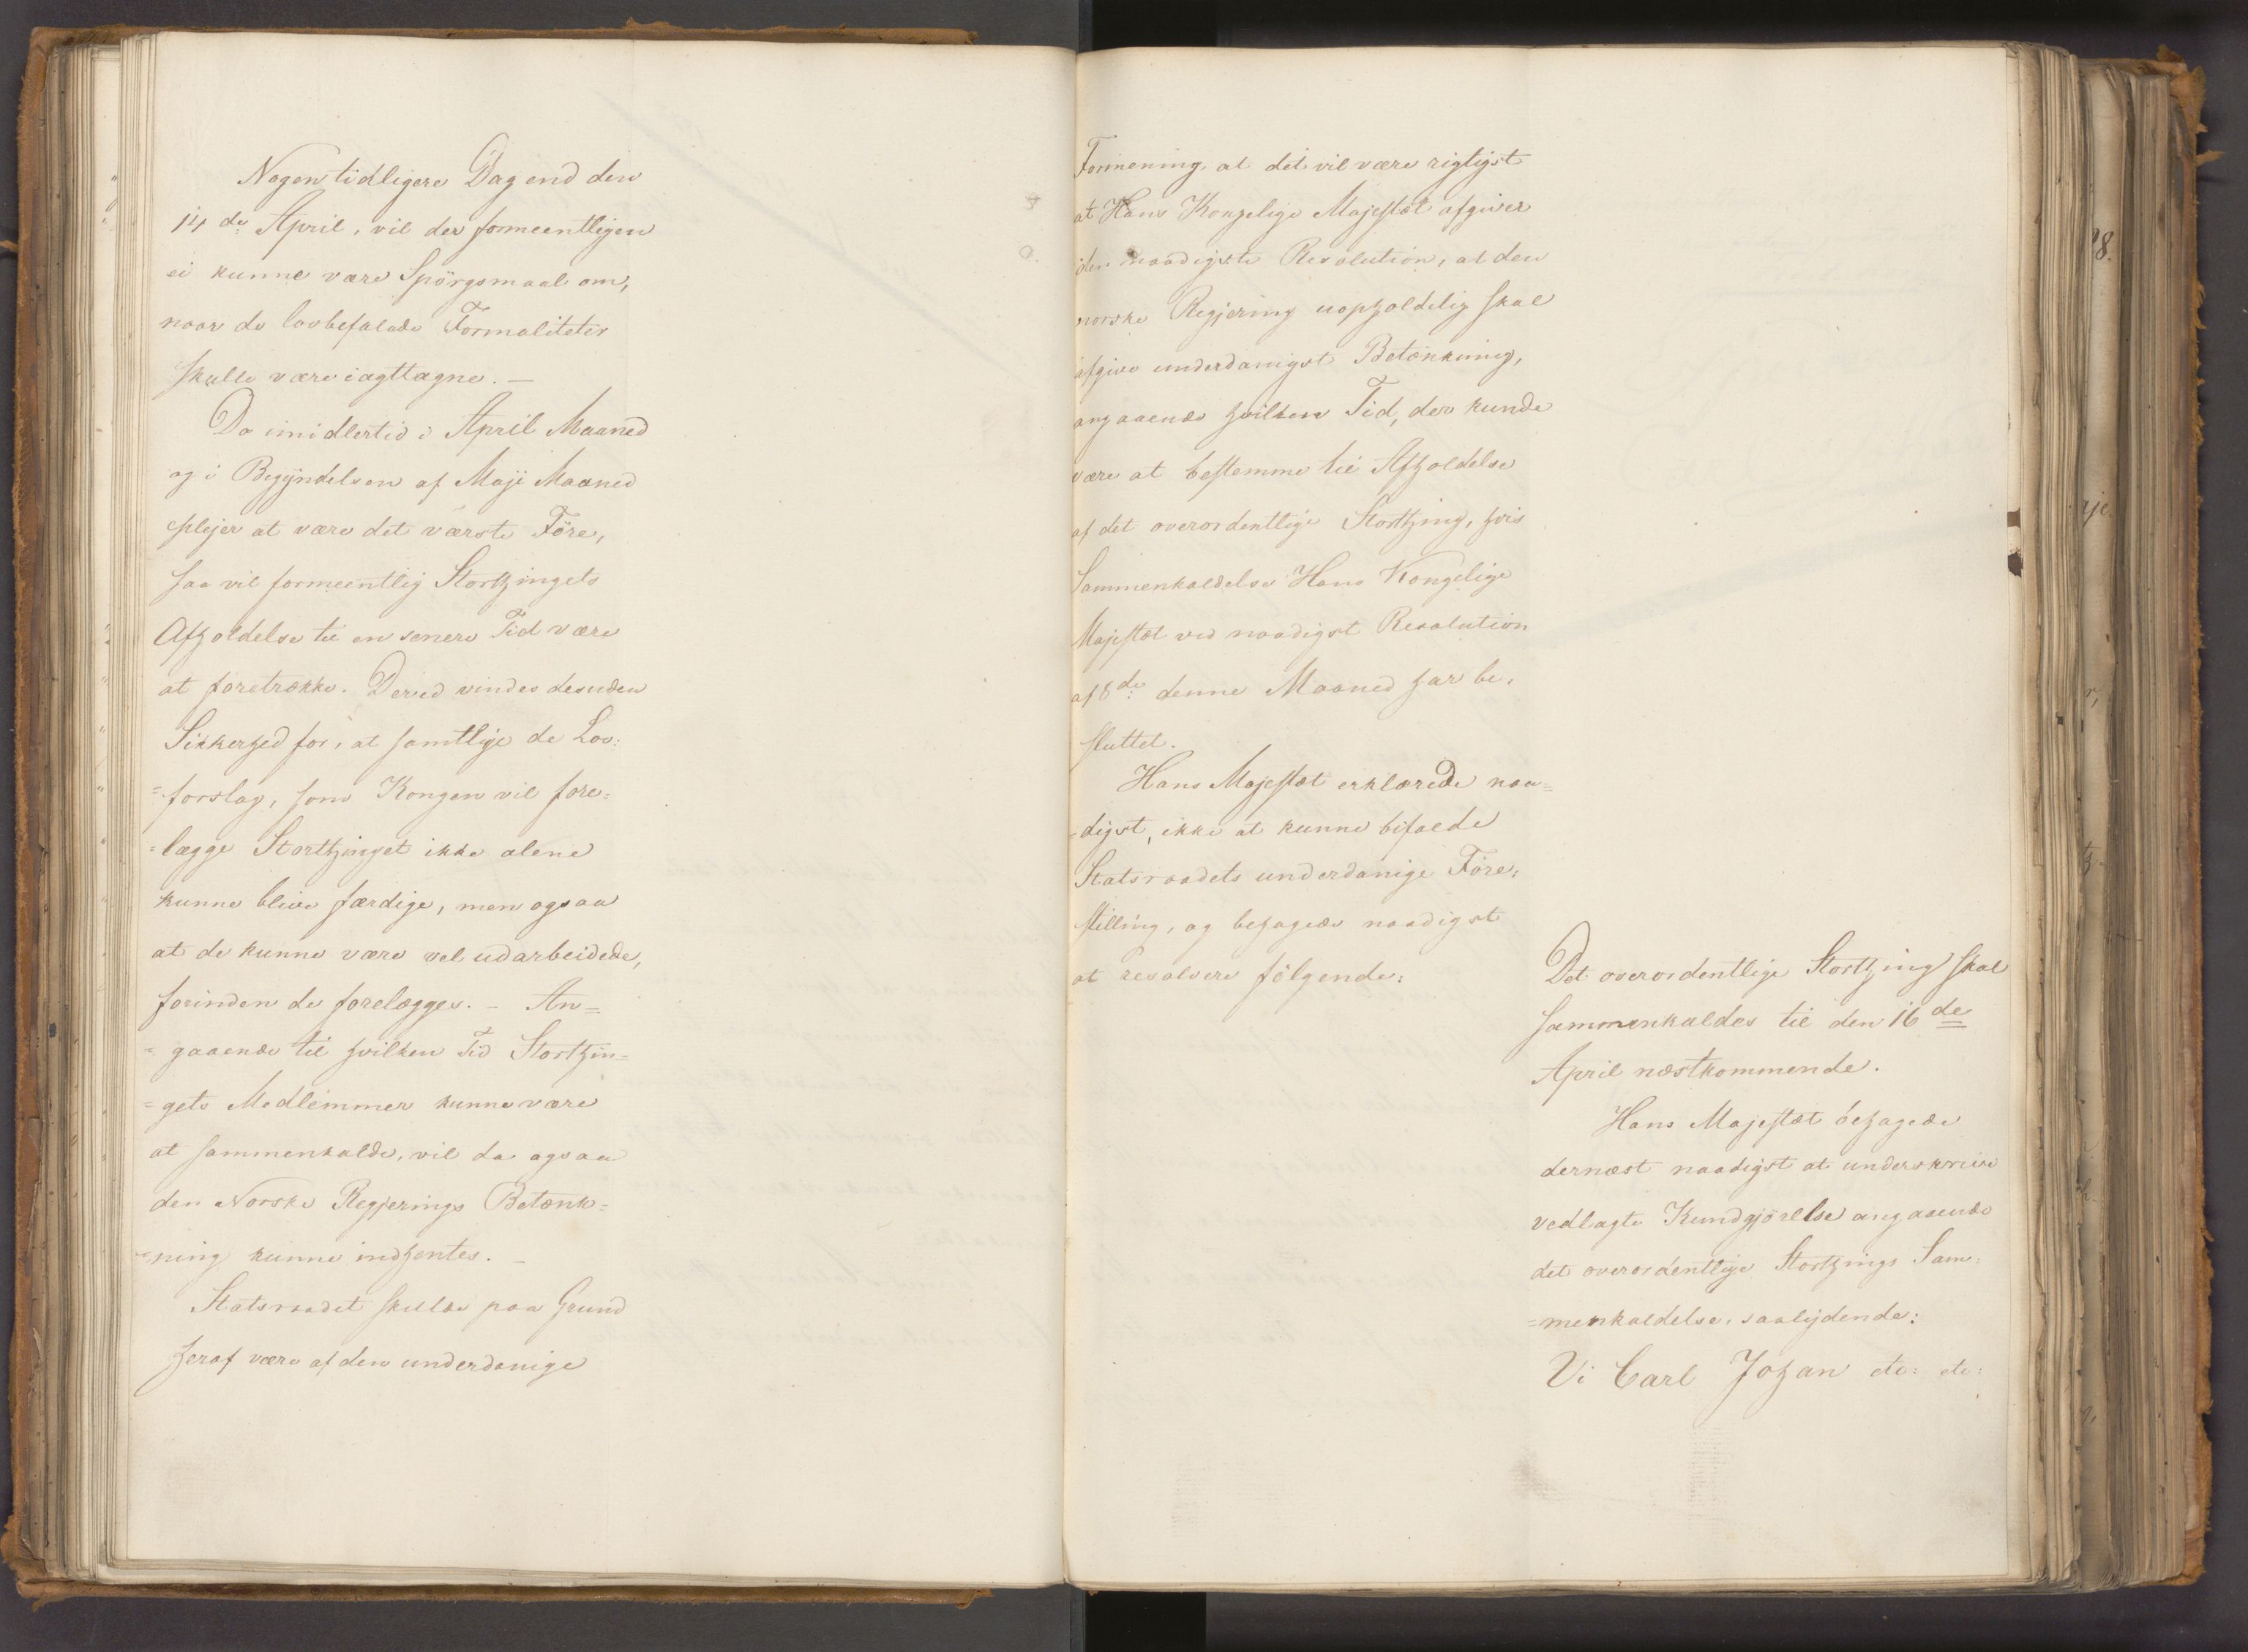 Nogen tidligere Dag end den
14de April, vil der formeentligen
ei kunne være Spörgsmaal om,
naar de lovbefalede Formaliteter
skulle være iagttagne. —
Da imidlertid i April Maaned
og i Begyndelsen af Maji Maaned
plejer at være det værste Före,
saa vil formeentlig Storthingets
Afholdelse til en senere Tid være
at foretrække. Derved vindes desuden
Sikkerhed for, at samtlige de Lov=
=forslag, som Kongen vil fore=
=lægge Storthinget ikke alene
kunne blive færdige, men ogsaa
at de kunne være vel udarbeidede,
forinden de forelægges. — An=
=gaaende til hvilken Tid Storthin=
=gets Medlemmer kunne være
at sammenkalde, vil da ogsaa
den Norske Regjerings Betænk=
=ning kunne indhentes. —
Statsraadet skulde paa Grund
heraf være af den underdanige
Formening, at det vil være rigtigst
at Hans Kongelige Majestæt afgiver
den naadigste Resolution, at den
norske Regjering uopholdelig skal
afgive underdanigst Betænkning,
angaaende hvilken Tid, der kunde
være at bestemme til Afholdelse
af det overordentlige Storthing, hvis
Sammenkaldelse Hans Kongelige
Majestæt ved naadigst Resolution
af 8de denne Maaned har be=
sluttet.
Hans Majestæt erklærede naa=
=digst, ikke at kunne bifalde
Statsraadets underdanige Före=
stilling, og behagede naadigst
at resolvere fölgende:
Det overordentlige Storthing skal
sammenkaldes til den 16de
April næstkommende.
Hans Majestæt behagede
dernæst naadigst at underskrive
vedlagte Kundgjörelse angaaende
det overordentlige Storthings Sam=
=menkaldelse, saalydende:
Vi Carl Johan etc: etc: